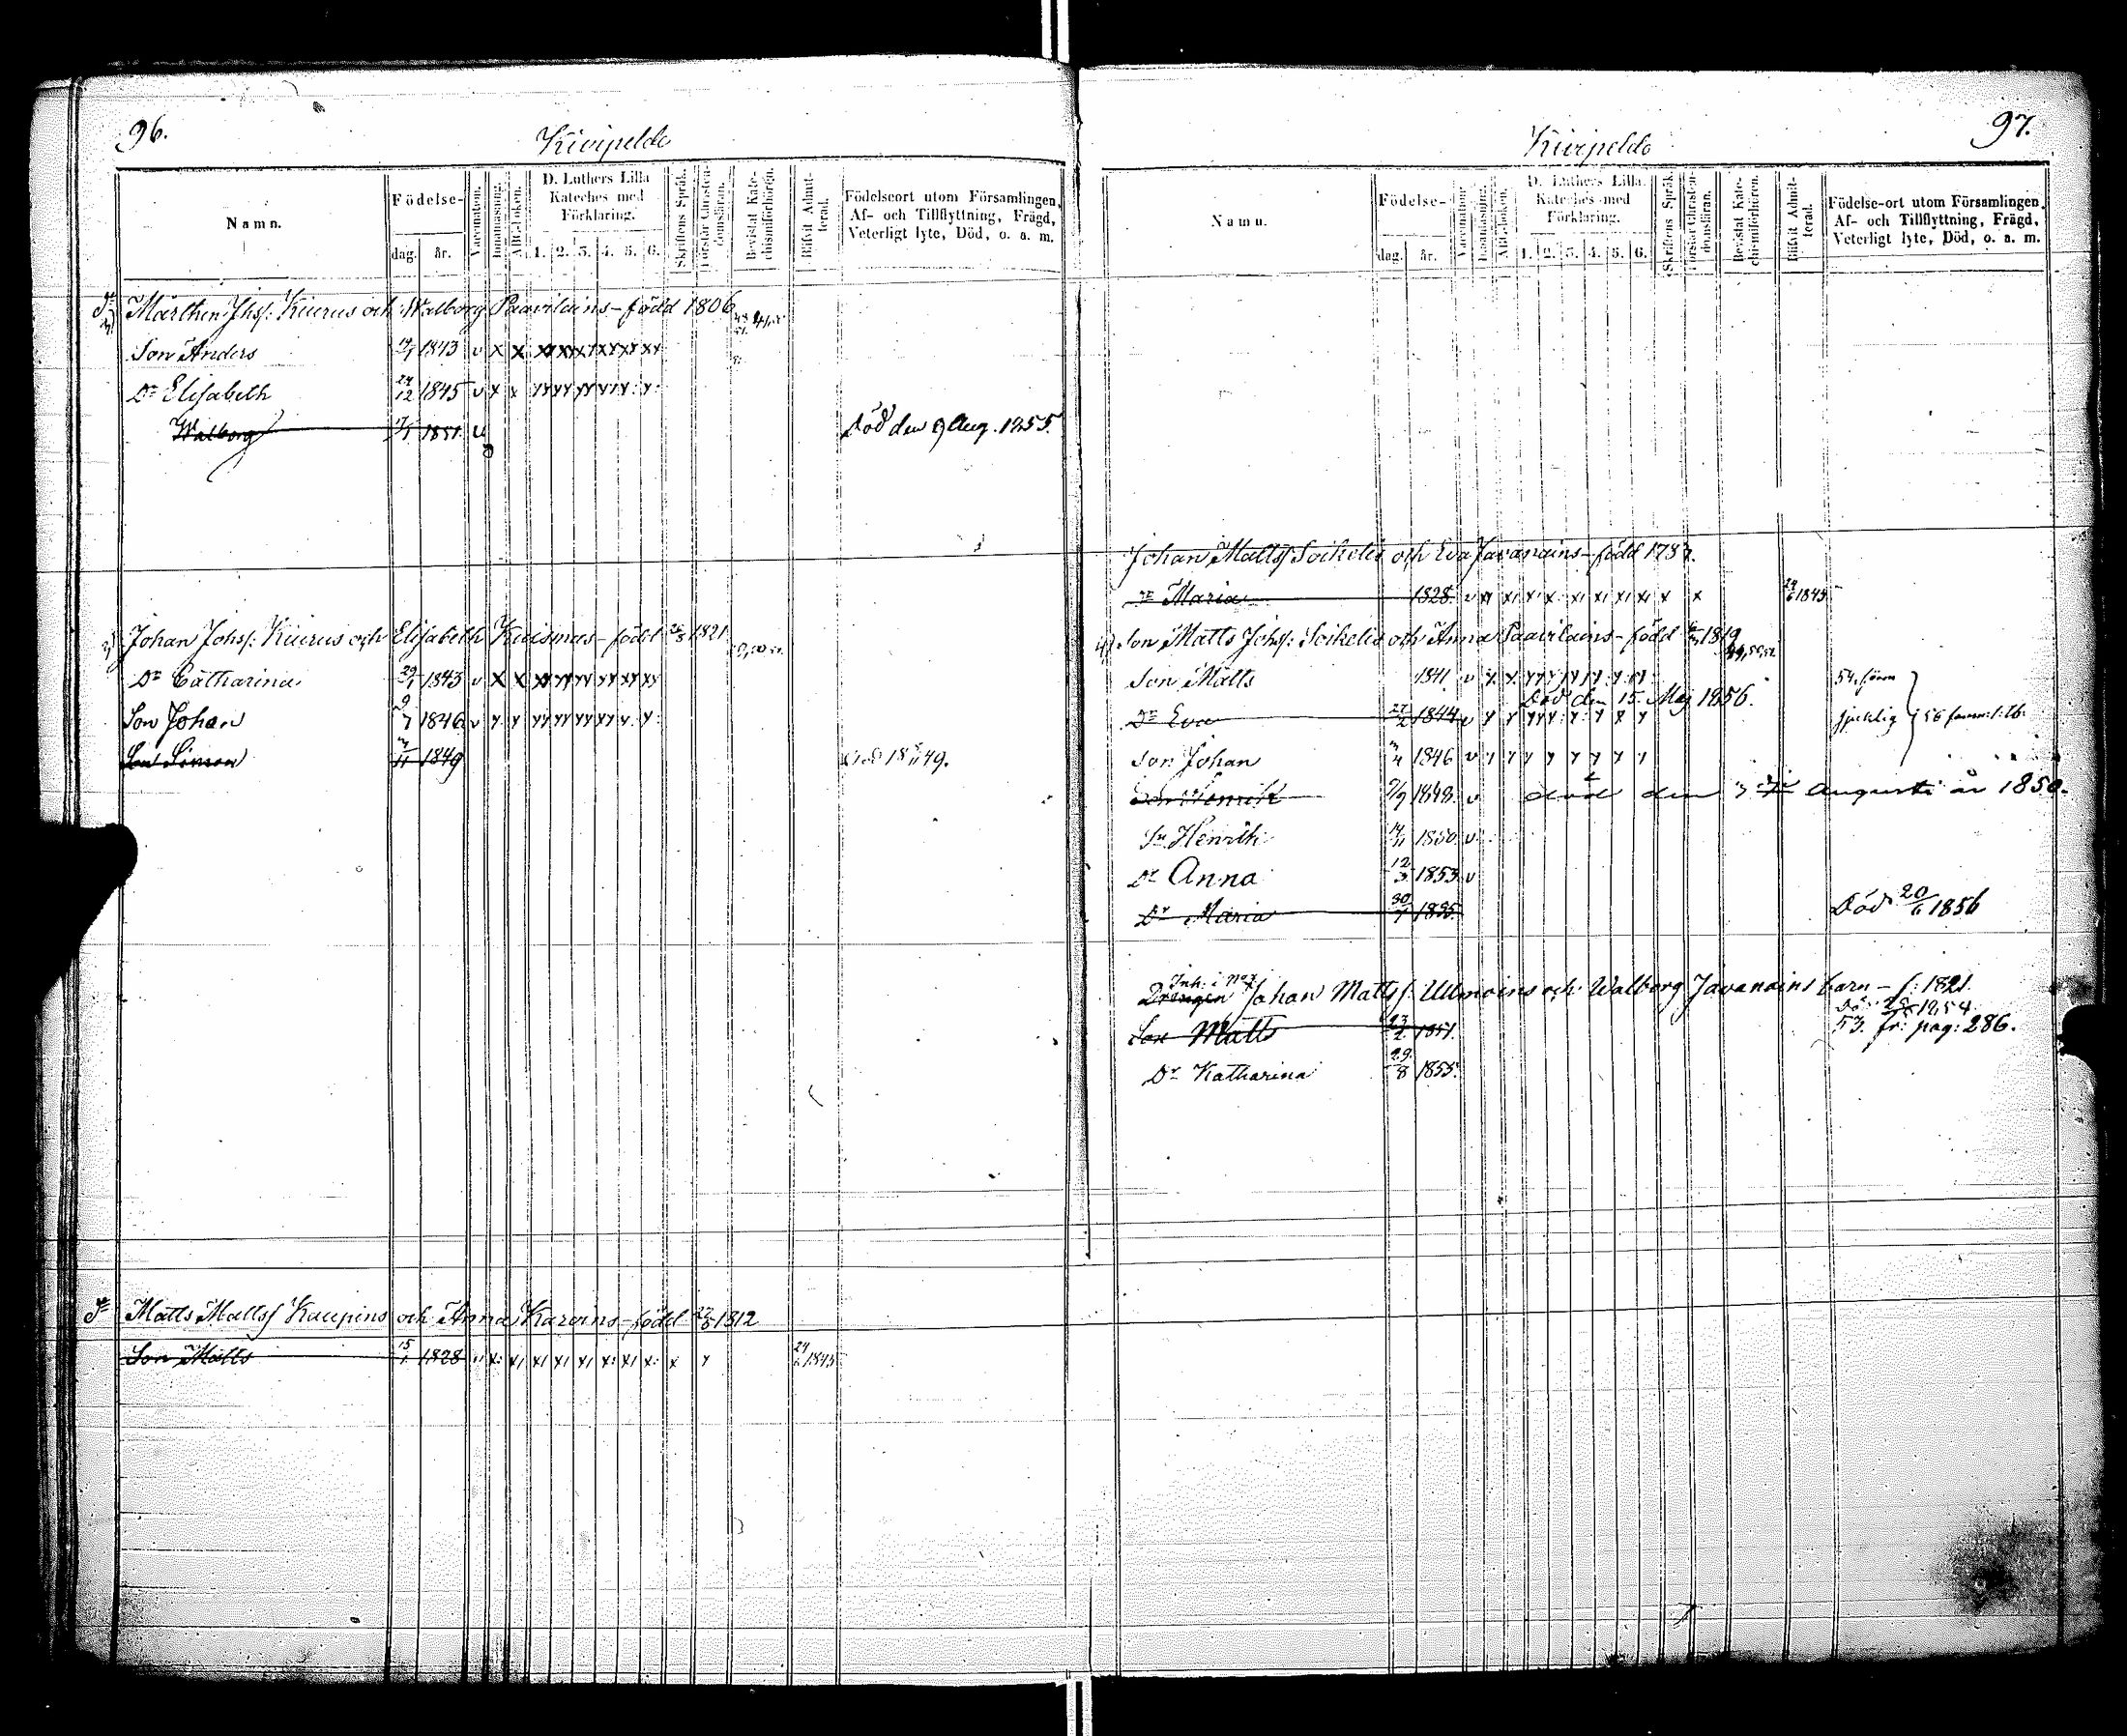 96.
Kivipeldo
Namn.
Födelse-
dag.
år.
Vaccination.
Innanläsning.
ABC-boken.
D. Luthers Lilla
Kateches med
Förklaring.
1. 2. 3. 4. 5. 6.
Skriftens Språk.
Förstår Christen-
domsläran.
Bevistat Kate-
chismiförhören.
Blifvit Admit-
terad.
Födelseort utom Församlingen,
Af- och Tillflyttning, Frägd,
Veterligt lyte, Död, o. a. m.
Mårthen Johsf: Kiurus och Walborg Paavilains - född 1806
Son Anders 1843 v x x
Dr Elisabeth 24/12 1845 v x x
Walborg 1851. v Död den 9 Aug. 1855.
Johan Johsf: Kiurus och Elisabeth Kuismas - född 1821
Dr Catharina 29/1 1843 v x x
Son Johan 9/7 1846 v y y
Son Simon 1849 49.
Matts Mattsf Kaupins och Anna Karvins - född 1812
Son Matts 15/1 1828 24/6 1845
97.
Kivipeldo
Namn.
Födelse-
dag.
år.
Vaccination.
Innanläsning.
ABC-boken.
D. Luthers Lilla
Kateches med
Förklaring.
1. 2. 3. 4. 5. 6.
Skriftens Språk.
Förstår Christen-
domsläran.
Bevistat Kate-
chismiförhören.
Blifvit Admit-
terad.
Födelse-ort utom Församlingen,
Af- och Tillflyttning, Frägd,
Veterligt lyte, Död, o. a. m.
Johan Mattsf Soikelis och Eva Javanains - född 1787.
Dr Maria 1828. v 24/6 1845
4) Son Matts Johsf: Soikelis och Anna Paavilains - född 1819
Son Matts 1841 v
Död den 15. Maj 1856.
Dr Eva 1844 v sjuklig
Son Johan 1846 v
Son Henrik 9/9 1848. v död den augusti år 1850.
Sn Henrik 14/11 1850. v
Dr Anna 12/3 1853 v
Dr Maria 30/7 1855. Död 20/6 1856
Inh: i No
Drängen Johan Mattsf. Ulmoins och Walborg Javanains barn - f: 1821.
1854
Son Matts 23/2 1851. 53. fr: pag: 286.
Dr Katharina 29/8 1855.